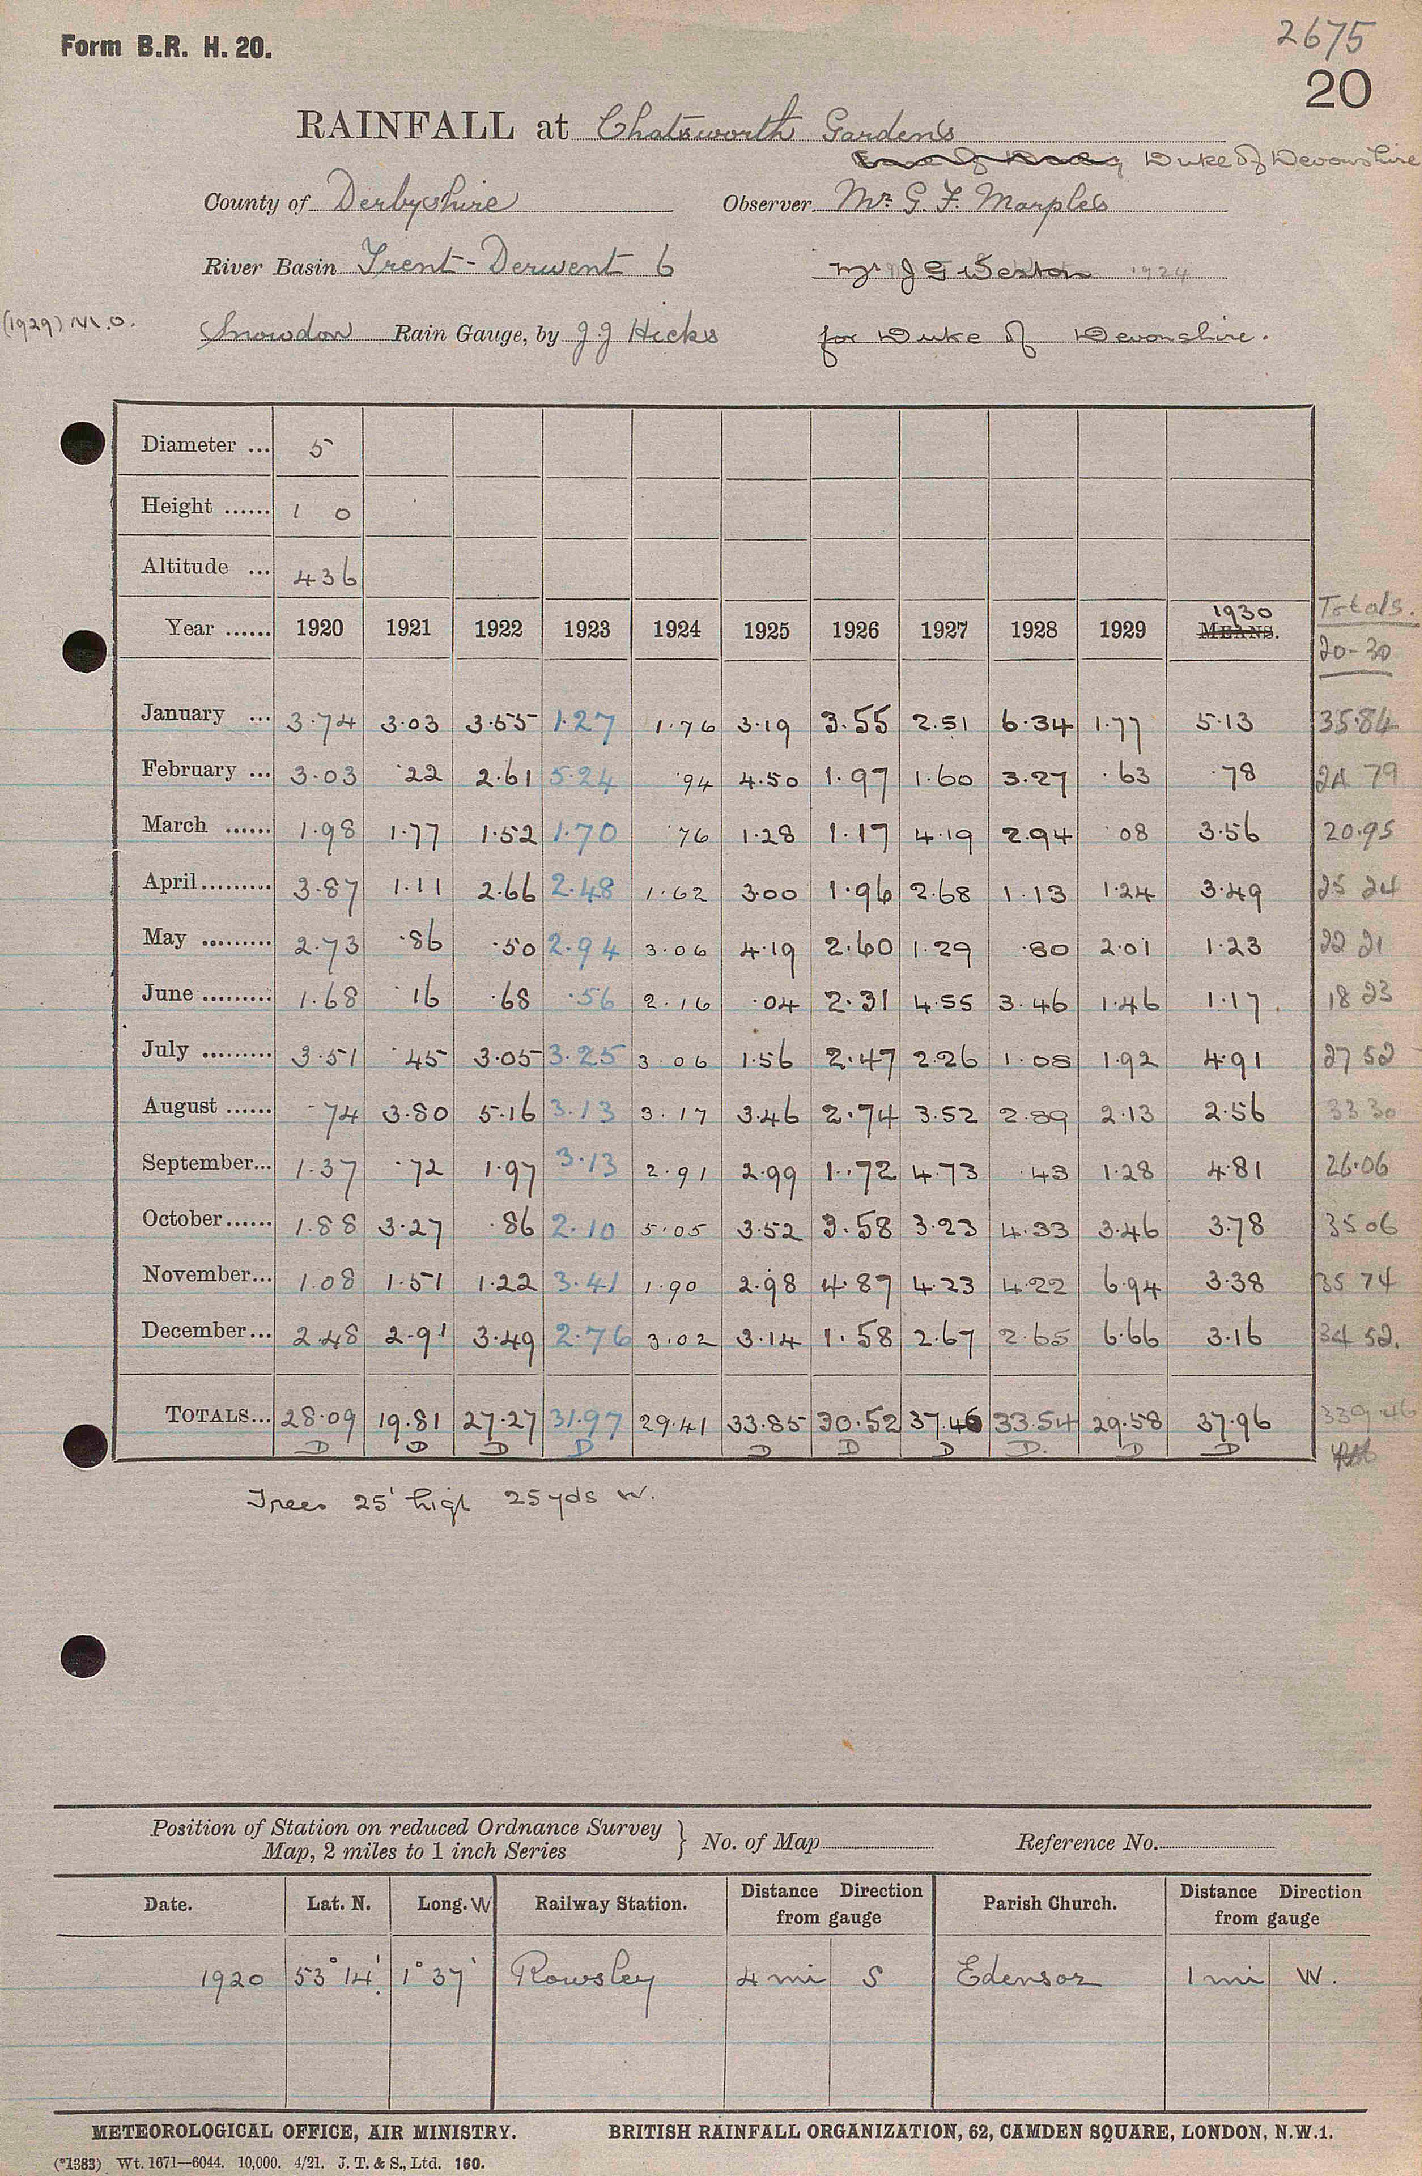 Form B.R. H. 20.
2675
20
RAINFALL at Chatsworth Gardens
Duke of Devonshire
County of Derbyshire Observer Mr. G. F. Marples
River Basin Trent - Derwent 6 Mr J G Weston 1924
(1929) M.O. Snowdon Rain Gauge, by J J Hicks for Duke of Devonshire.
Diameter ... 5
Height ...... 1 0
Altitude ... 436
Totals.
Year ...... 1920 1921 1922 1923 1924 1925 1926 1927 1928 1929 1930 MEANS. 20-30
January ... 3.74 3.03 3.55 1.27 1.76 3.19 3.55 2.51 6.34 1.77 5.13 35.84
February ... 3.03 .22 2.61 5.24 .94 4.50 1.97 1.60 3.27 .63 .78 24 79
March ...... 1.98 1.77 1.52 1.70 .76 1.28 1.17 4.19 2.94 08 3.56 20.95
April......... 3.87 1.11 2.66 2.48 1.62 3.00 1.96 2.68 1.13 1.24 3.49 25 24
May ......... 2.73 .86 .50 2.94 3.06 4.19 2.60 1.29 .80 2.01 1.23 22 21
June ......... 1.68 16 .68 .56 2.16 .04 2.31 4.55 3.46 1.46 1.17 18 23
July ......... 3.51 .45 3.05 3.25 3 06 1.56 2.47 2.26 1.08 1.92 4.91 27 52
August ...... .74 3.80 5.16 3.13 3.17 3.46 2.74 3.52 2.89 2.13 2.56 33 30
September... 1.37 .72 1.97 3.13 2.91 2.99 1.72 4.73 .43 1.28 4.81 26.06
October...... 1.88 3.27 .86 2.10 5.05 3.52 3.58 3.23 4.33 3.46 3.78 35 06
November... 1.08 1.51 1.22 3.41 1.90 2.98 4.87 4.23 4.22 6.94 3.38 35 74
December... 2.48 2.91 3.49 2.76 3.02 3.14 1.58 2.67 2.65 6.66 3.16 34 52.
TOTALS... 28.09 19.81 27.27 31.97 29.41 33.85 30.52 37.46 33.54 29.58 37.96 339.46
D D D D D D D D. D D
Trees 25' high 25 yds W.
Position of Station on reduced Ordnance Survey
Map, 2 miles to 1 inch Series } No. of Map Reference No.
Date. Lat. N. Long. W Railway Station. Distance Direction from gauge Parish Church. Distance Direction from gauge
1920 53° 14' 1° 37' Rowsley 4 mi S Edensor 1 mi W.
METEOROLOGICAL OFFICE, AIR MINISTRY. BRITISH RAINFALL ORGANIZATION, 62, CAMDEN SQUARE, LONDON, N.W.1.
(*1383) Wt. 1671—6044. 10,000. 4/21. J. T. & S., Ltd. 160.